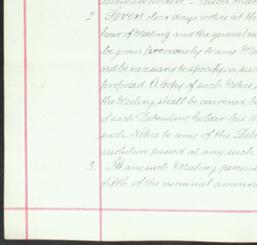 2 Seven clear days notice at the
hour of Meeting and the general na
be given previously to any Mee
not be necessary to specify in such
proposed. A copy of such Notice,
the Meeting shall be convened b
of each Debenture holder but th
such Notice to any of the Debe
resolution passed at any such
3. At any such Meeting persons
fifth of the nominal amount